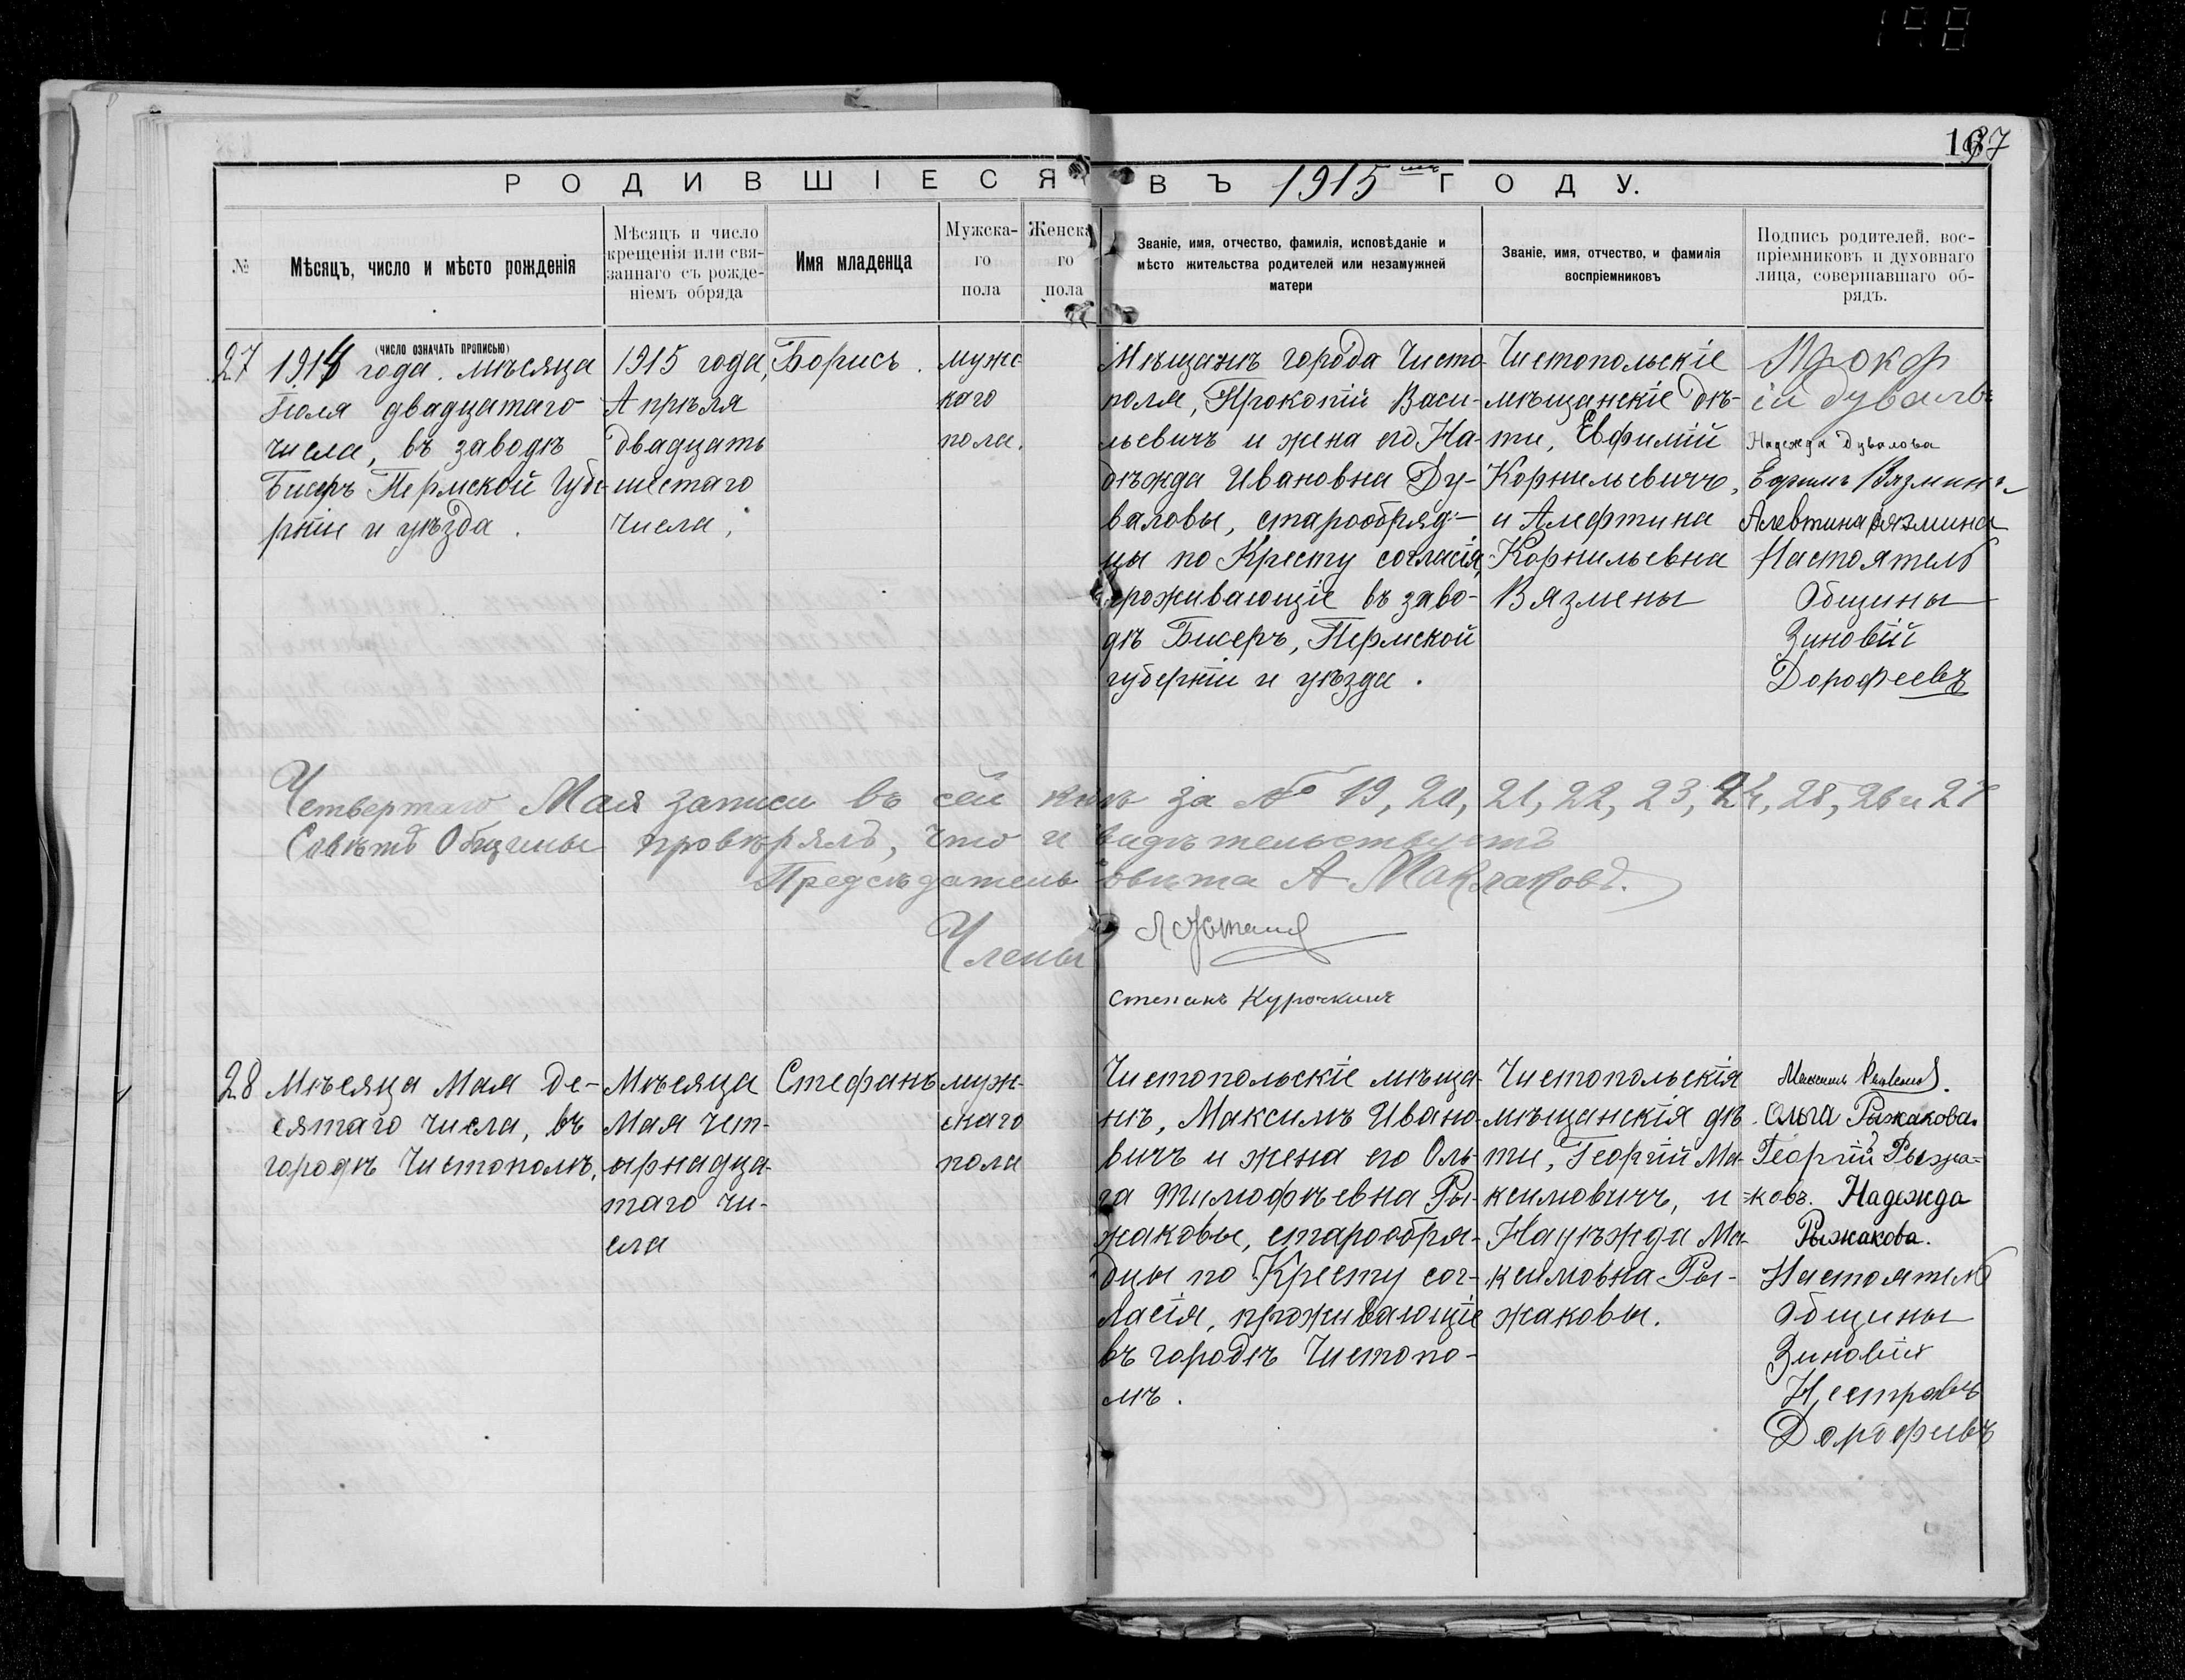 198
167
РОДИВШІЕСЯ ВЪ 1915мъ ГОДУ.
№
Мѣсяцъ, число и мѣсто рожденія
Мѣсяцъ и число
крещенія или свя-
заннаго съ рожде-
ніемъ обряда
Имя младенца
Мужска-
го
пола
Женска
го
пола
Званіе, имя, отчество, фамилія, исповѣданіе и
мѣсто жительства родителей или незамужней
матери
Званіе, имя, отчество, и фамилія
воспріемниковъ
Подпись родителей, вос-
пріемниковъ и духовнаго
лица, совершавшаго об-
рядъ.
(ЧИСЛО ОЗНАЧАТЬ ПРОПИСЬЮ)
27
1914 года. мѣсяца
Іюля двадцатаго
числа, въ заводѣ
Бисеръ Пермской Губе-
рніи и уѣзда.
1915 года,
Апрѣля
двадцать
шестаго
числа,
Борисъ.
мужс
каго
пола.
Мѣщанинъ города Чисто-
поля, Прокопій Васи-
льевичъ и жена его На-
дѣжда Ивановна Ду-
валовы, старообряд-
цы по Кресту согласія,
проживающіе въ заво-
дѣ Бисеръ, Пермской
губерніи и уѣзда.
Чистопольскіе
мѣщанскіе дѣ-
ти, Евфимій
Корнильевичъ,
и Алефтина
Корнильевна
Вязмены
Прокоф
ій Дуваловъ
Надежда Дувалова
Ефимъ Вязминъ
Алевтина Вязмина
Настоятель
Общины
Зиновій
Дорофеевъ
Четвертаго Мая записи въ сей кни за № 19, 20, 21, 22, 23, 24, 25, 26 и 27
Совѣтъ Общины провѣрялъ, что и видѣтельствуетъ
Предсѣдатель овѣта А Маклаковъ.
Члены
Степанъ Курочкинъ
28
Мѣсяца Мая де-
сятаго числа, въ
городѣ Чистополѣ,
Мѣсяца
Мая чет-
ырнадца-
таго чи-
сла
Стефанъ
муж-
скаго
пола
Чистопольскіе мѣща-
нѣ, Максимъ Ивано-
вичъ и жена его Оль-
га Тимофѣевна Ры-
жаковы, старообря-
дцы по Кресту сог-
ласія, проживающіе
въ городѣ Чистопо-
лѣ.
Чистопольскія
мѣщанскія дѣ-
ти, Георгій Ма-
ксимовичъ, и
Надѣжда Ма-
ксимовна Ры-
жаковы.
Максимъ
Ольга Рыжакова
Георгій Рыжа-
ковъ. Надежда
Рыжакова.
Настоятель
Общины
Зиновій
Нестровъ
Дорофеевъ